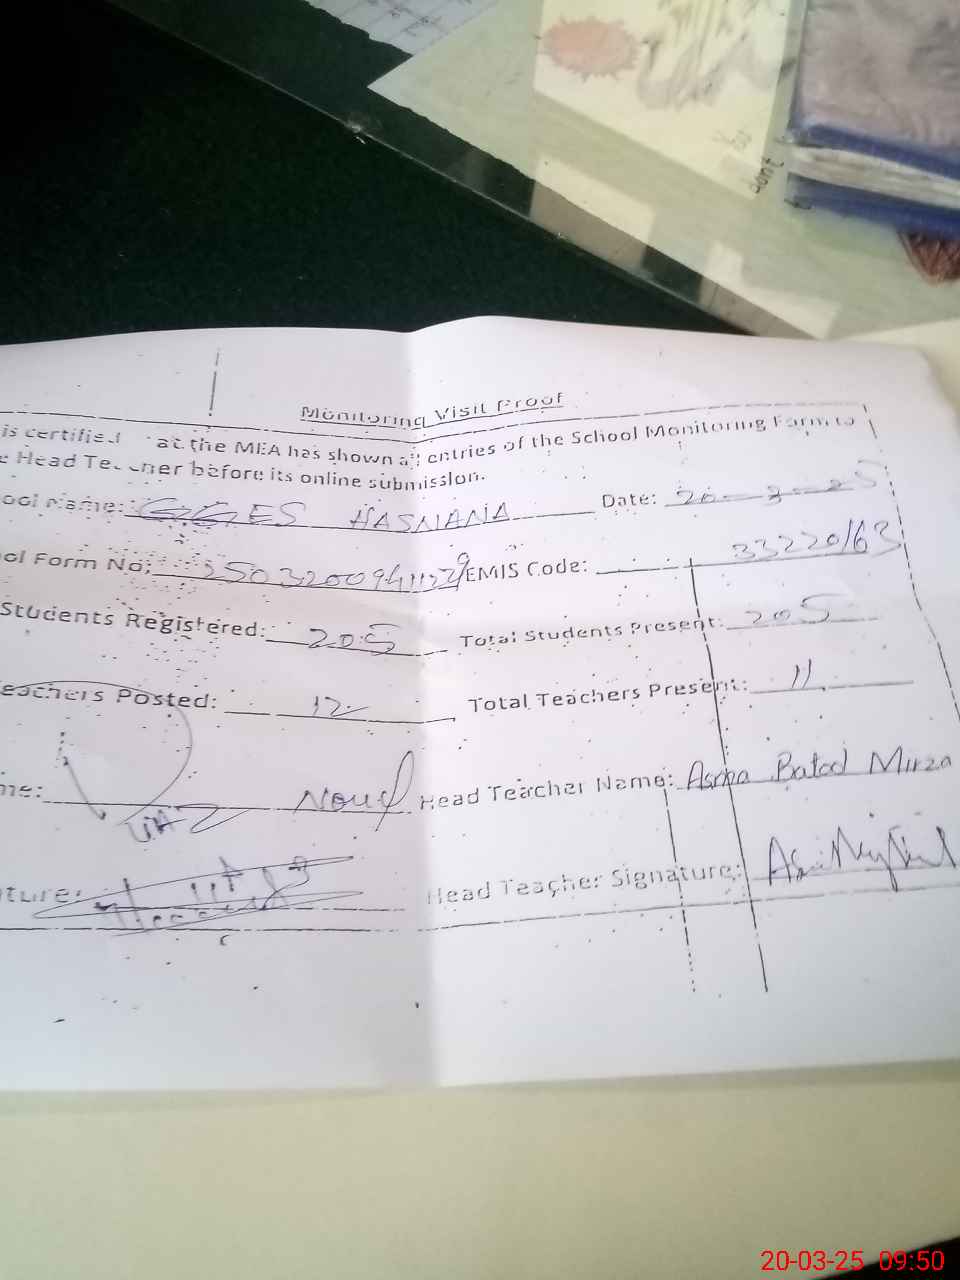 dont
Monitoring Visit Proof
is certified at the MEA has shown all entries of the School Monitoring Form to
e Head Teacher before its online submission.
ool Name: GGES HASNANA Date: 20-3-25
ol Form No: EMIS Code: 33220163
Students Registered: 205 Total Students Present: 205
eachers Posted: 12 Total Teachers Present: 11
me: Head Teacher Name: Asma Mirza
ture: Head Teacher Signature:
20-03-25 09:50